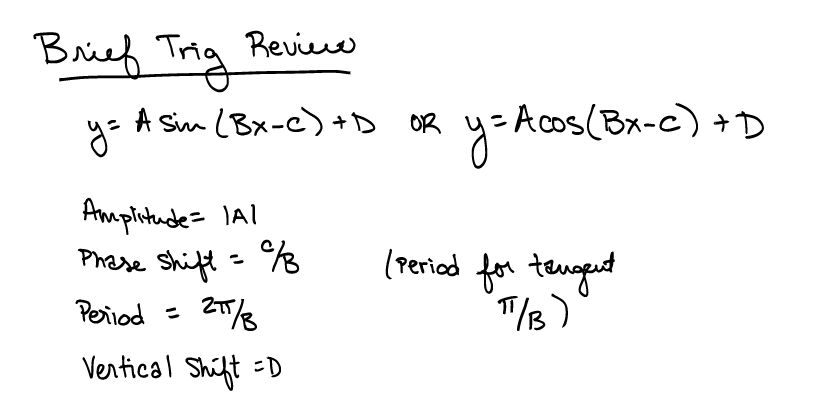 Brief Trig Review
y= A sin (Bx-c) + D OR y= A cos(Bx-c) + D
Amplitude= |A|
Phase Shift = c/B (Period for tangent
Period = 2π/B π/B)
Vertical Shift =D